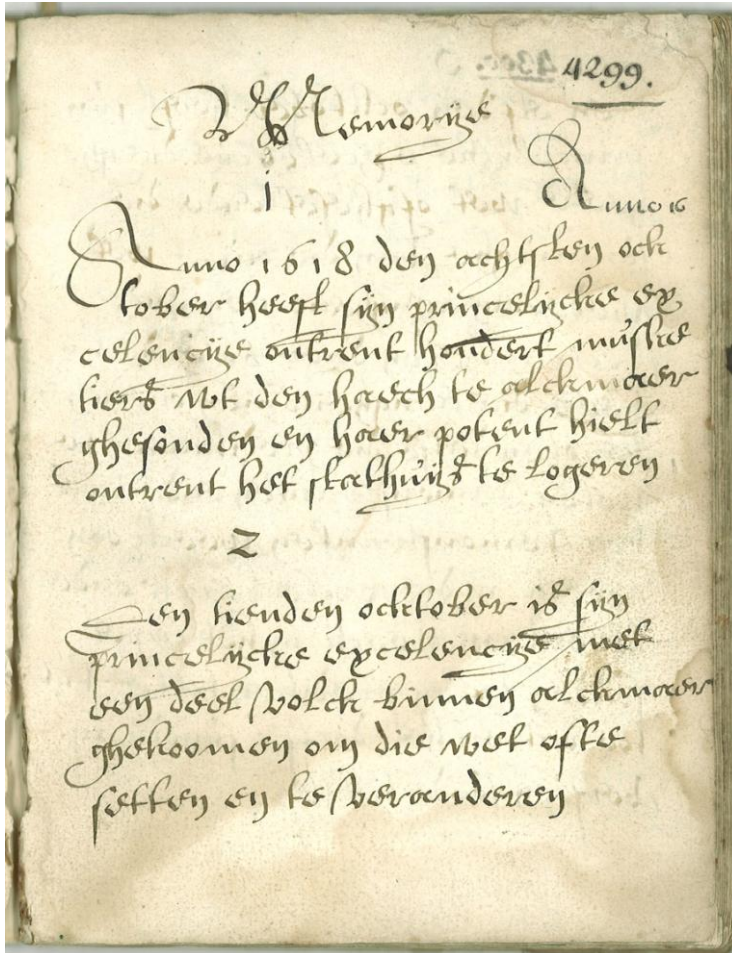 4299.
Memorije
1
Anno 16
Anno 1618 den achtsten ock
tober heeft sijn princelijcke ex
celencije ontrent hondert muske
tiers wt den haech te alckmaer
ghesonden en haer potent hielt
ontrent het stathuijs te logeren
2
Den tienden ocktober is sijn
princelijcke excelencije met
een deel volck binnen alckmaer
ghekoomen om die wet ofte
setten en te veranderen